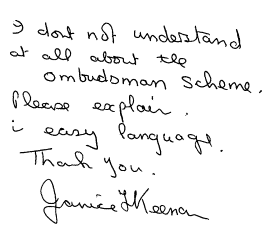 I dont not understand
at all about the
ombudsman scheme.
Please explain.
i easy language.
Thank you.
Janice Y Keenan